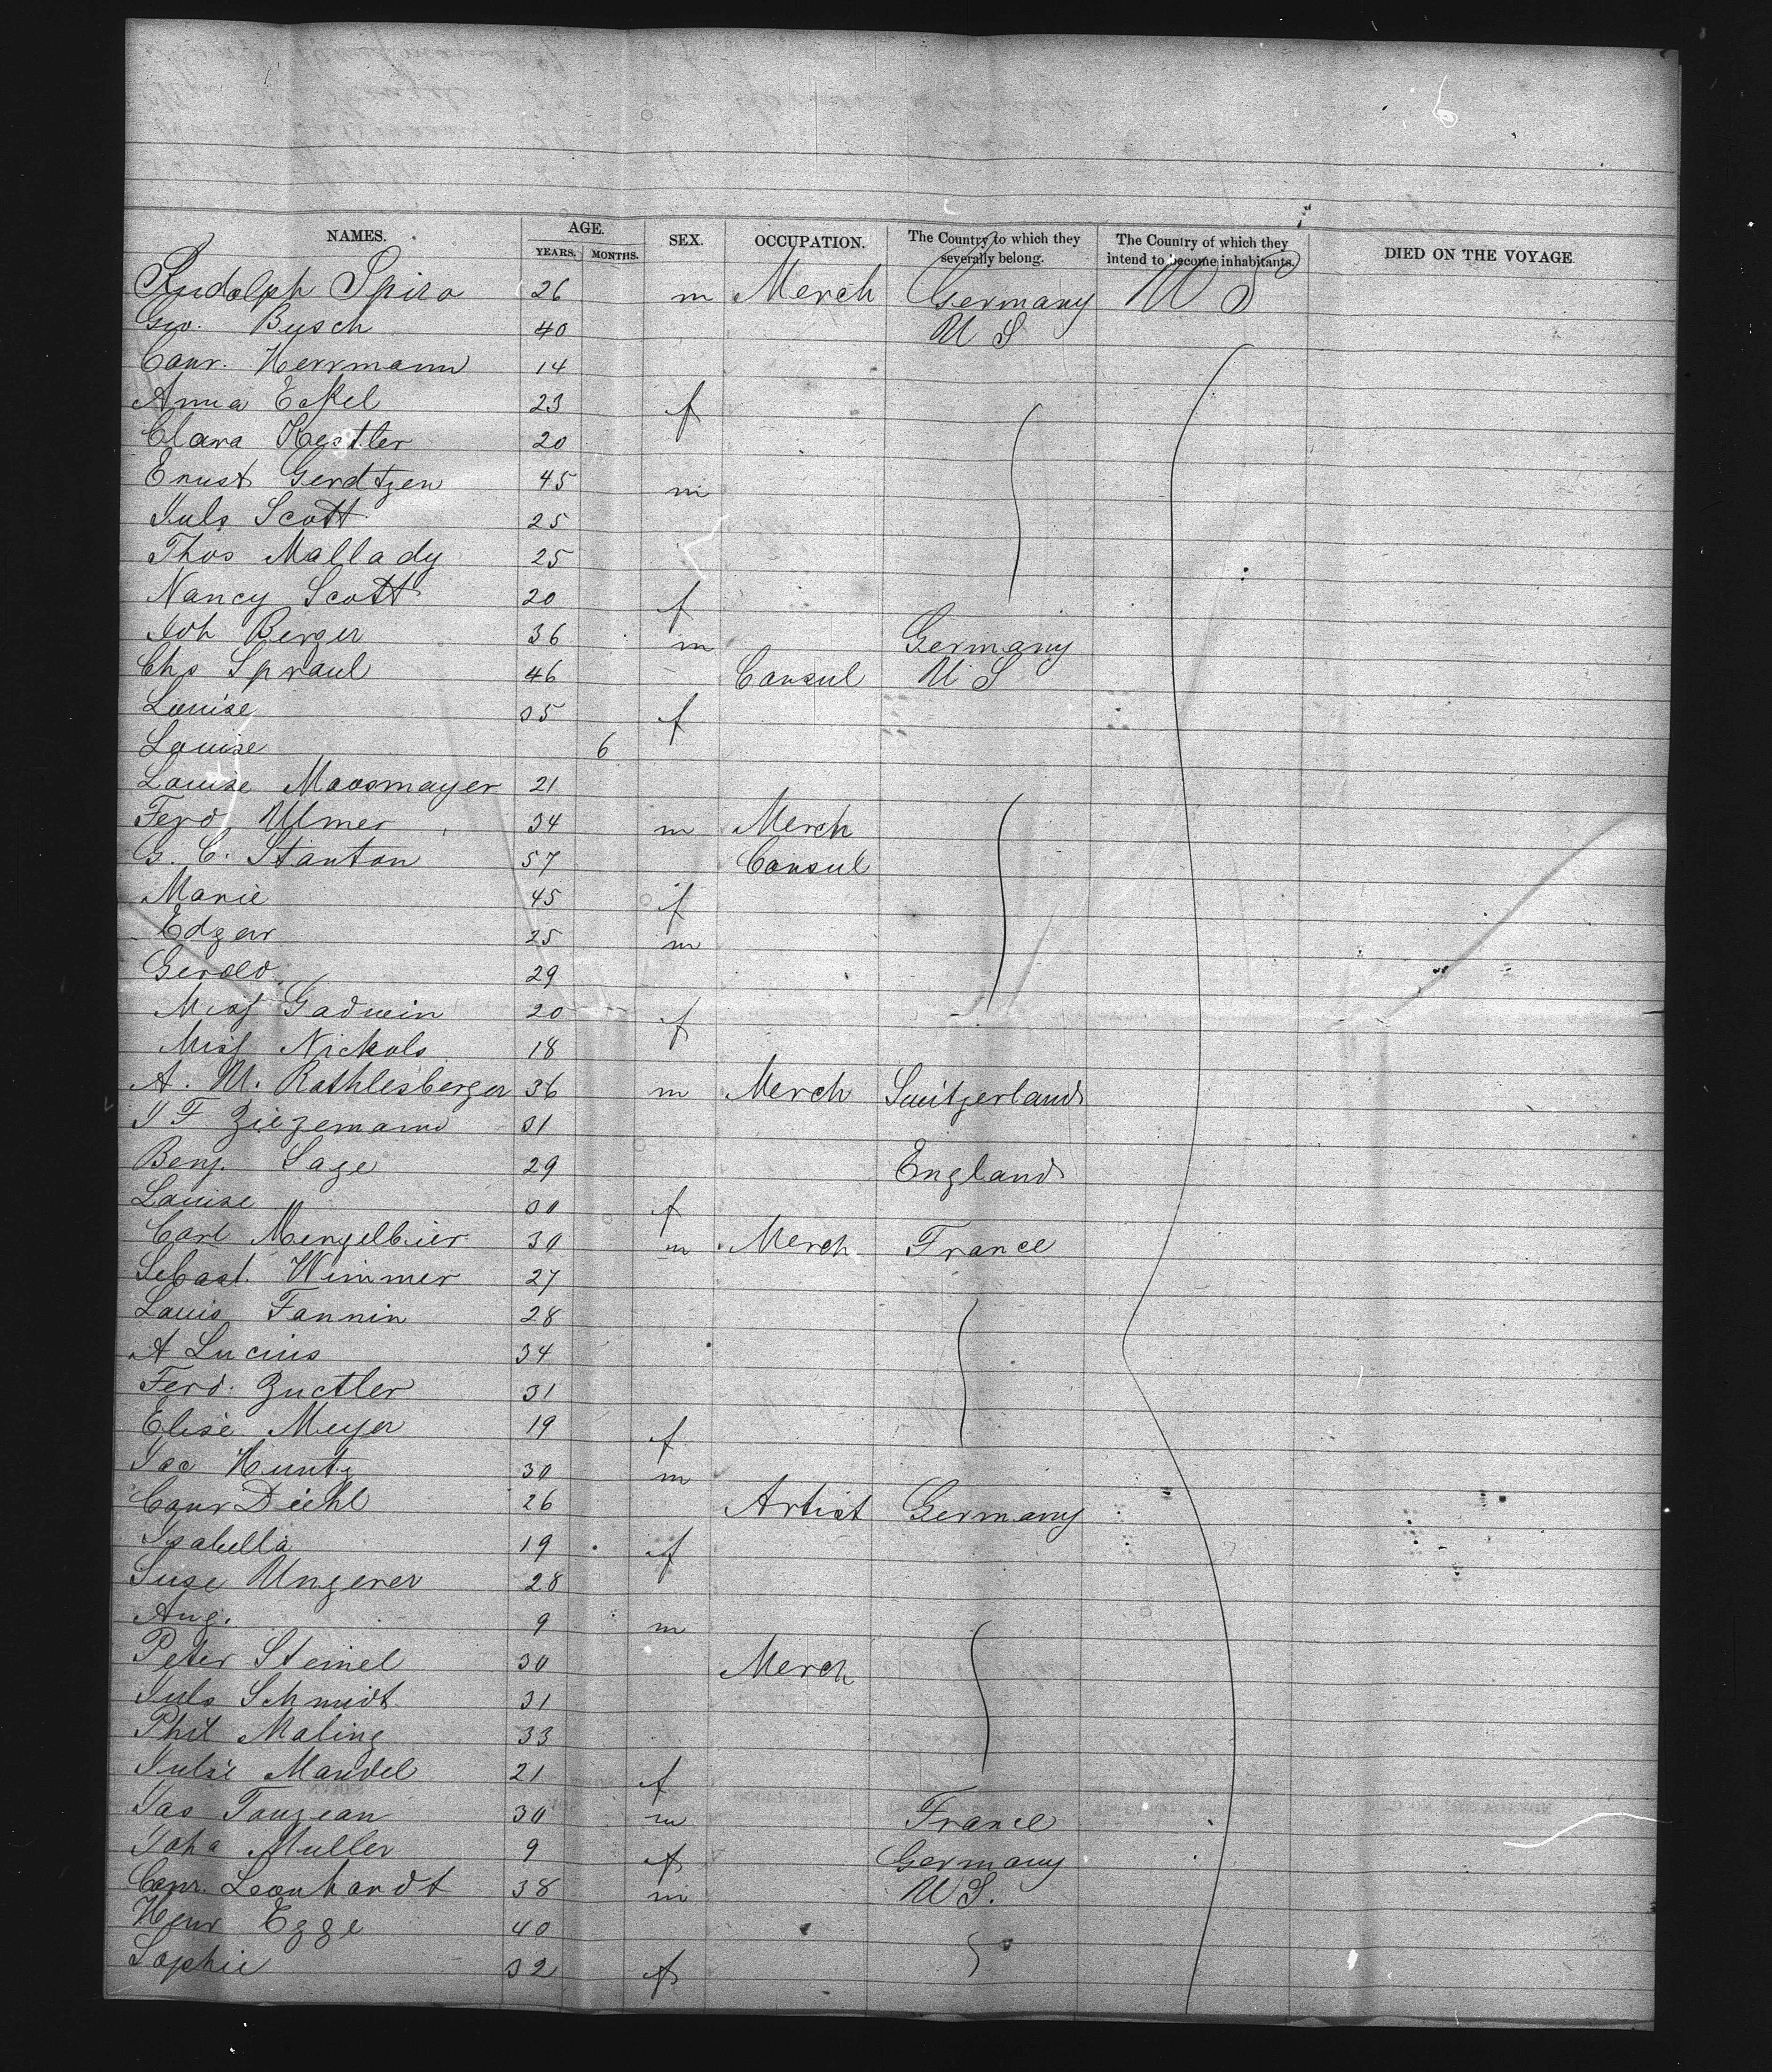 NAMES. AGE. YEARS. MONTHS. SEX. OCCUPATION. The Country to which they severally belong. The Country of which they intend to become inhabitants. DIED ON THE VOYAGE
Rudolph Spiro 26 m Merch Germany U S
Geo. Busch 40 U S
Conr. Herrmann 14
Anna Eckel 23 f
Clara Kestler 20
Ernst Gerdtzen 45 m
Juls Scott 25
Thos Mallady 25
Nancy Scott 20 f
Joh Berger 36 m Germany
Chs Spraul 46 Consul U S
Louise 35 f
Louise 6
Louise Moosmayer 21
Ferd Ulmer 34 m Merch
G. C. Stanton 57 Consul
Marie 45 f
Edgar 25 m
Gerold 29
Miss Gadwin 20 f
Miss Nickols 18
A. M. Rothlesberger 36 m Merch Switzerland
J F Ziezemann 31
Benj. Sage 29 England
Louise 30 f
Carl Mengelbier 30 m Merch France
Sebast. Wimmer 27
Louis Fannin 28
A Lucius 34
Ferd. Zuctler 31
Elise Meyer 19 f
Jac Kuntz 30 m
Conr Diehl 26 Artist Germany
Isabella 19 f
Suse Ungerer 28
Aug. 9 m
Peter Steinel 30 Merch
Juls Schmidt 31
Phil Maling 33
Julie Mandel 21 f
Jas Touzean 30 m France
Joha Muller 9 f Germany
Conr. Leonhardt 38 m U S.
Henr Egge 40
Sophie 32 f